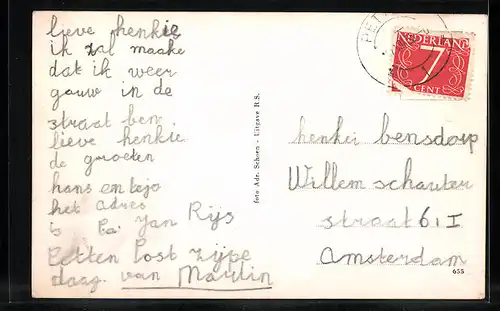 lieve henkie
ik zal maake
dat ik weer
gauw in de
straat ben
lieve henkie
de groeten
hans en tejo
het adres
is Pa. Jan Rijs
Petten Post zijpe
daag. van Martin
foto Adr. Schoen - Uitgave H.S.
PET
NEDERLAND
7
CENT
henkei bensdorp
Willem schouter
straat 61 I
Amsterdam
655